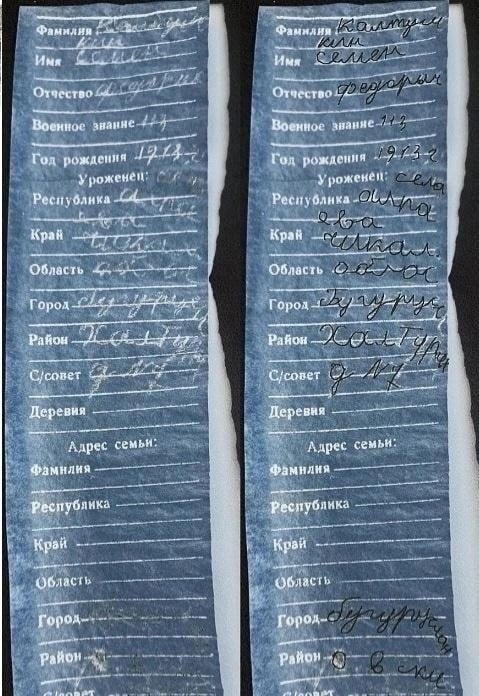 Фамилия Калтуш
кин
Имя Семен
Отчество Федорыч
Военное звание 113
Год рождения 1913 г
Уроженец: села
Республика
ева
Край Чкал.
Область облас
Город Бугурус
Район Халтур
С/совет
Деревня
Адрес семьи:
Фамилия
Республика
Край
Область
Город
Район
С/совет
Фамилия Калтуш
кин
Имя Семен
Отчество Федорыч
Военное звание 113
Год рождения 1913 г
Уроженец: села
Республика
ева
Край Чкал.
Область облас
Город Бугурус
Район Халтур
С/совет
Деревня
Адрес семьи:
Фамилия
Республика
Край
Область
Город бугуруслан
Район о в ски
С/совет